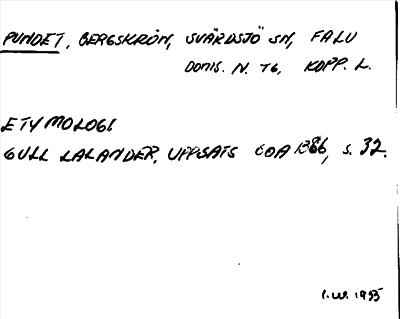 PUNDET, BERGSKRÖN, SVÄRDSJÖ SN, FALU
DOMS. N. TG, KOPP. L.
ETYMOLOGI
GULL LALANDER, UPPSATS OOA 1386, s. 32.
I.W. 1955